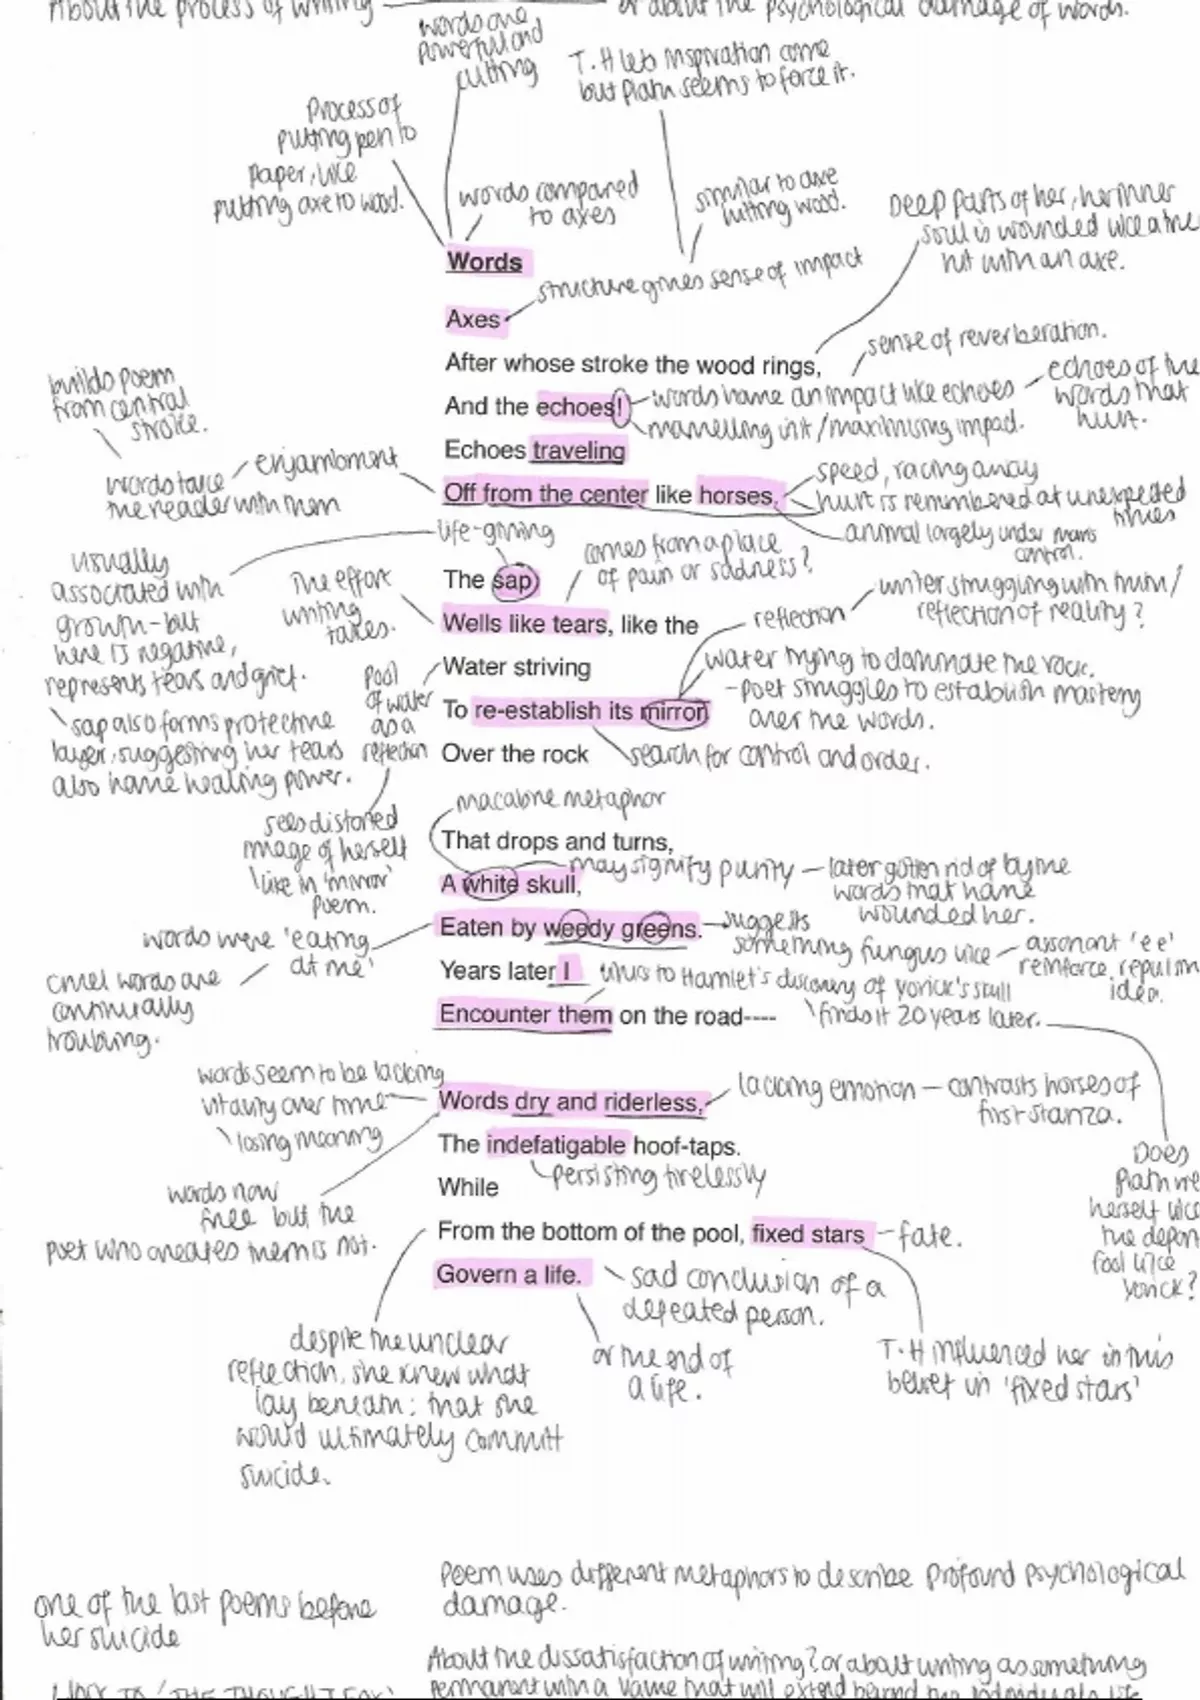 About the process of writing
or about the psychological damage of words.
words are
powerful and
cutting
T.H lets inspiration come
but Plath seems to force it.
Process of
putting pen to
paper, like
putting axe to wood.
words compared
to axes
similar to axe
hitting wood.
Deep parts of her, her inner
soul is wounded like a tree
hit with an axe.
Words
structure gives sense of impact
Axes
After whose stroke the wood rings,
sense of reverberation.
builds poem
from central
stroke.
And the echoes!
words have an impact like echoes
echoes of the
words that
hurt.
travelling unit/maximising impact.
Echoes traveling
enjambment
words take
the reader with them
Off from the center like horses.
speed, racing away
hurt is remembered at unexpected
times
animal largely under mans
control.
life-giving
usually
associated with
growth - but
here is negative,
represents tears and grief.
sap also forms protective
layer, suggesting her tears
also have healing power.
The effort
writing
takes.
The sap
comes from a place
of pain or sadness?
Wells like tears, like the
reflection
writer struggling with truth/
reflection of reality?
Water striving
pool
of water
as a
reflection
water trying to dominate the rock.
- poet struggles to establish mastery
over the words.
To re-establish its mirror
Over the rock
search for control and order.
sees distorted
image of herself
like in 'mirror'
poem.
macabre metaphor
That drops and turns,
may signify purity
later gotten rid of by the
words that have
wounded her.
A white skull,
Eaten by weedy greens.
suggests
something fungus like
assonant 'ee'
reinforce repulsion
idea.
words were 'eating
at me'
cruel words are
continually
troubling.
Years later I
links to Hamlet's discovery of Yorick's skull
Encounter them on the road----
finds it 20 years later.
words seem to be lacking
vitality over time
losing meaning
Words dry and riderless,
lacking emotion - contrasts horses of
first stanza.
The indefatigable hoof-taps.
persisting tirelessly
words now
free but the
poet who creates them is not.
While
Does
Plath
herself like
the
fool like
Yorick?
From the bottom of the pool, fixed stars
fate.
Govern a life.
sad conclusion of a
defeated person.
despite the unclear
reflection, she knew what
lay beneath: that she
would ultimately committ
suicide.
or the end of
a life.
T.H influenced her in this
belief in 'fixed stars'
Poem uses different metaphors to describe profound psychological
damage.
one of the last poems before
her suicide
About the dissatisfaction of writing? or about writing as something
permanent with a value that will extend beyond the individuals life
Link to 'THE THOUGHT FOX'